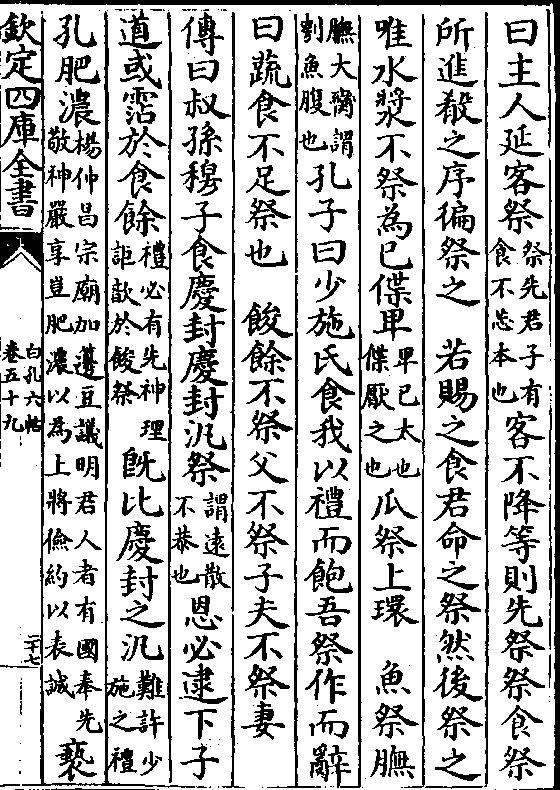 曰主人延客祭祭先君子有食不忘本也客不降等則先祭祭食祭
所進殽之序徧祭之　若賜之食君命之祭然後祭之
唯水漿不祭為已僷卑卑已太也僷厭之也瓜祭上環　魚祭膴
膴大臠謂刳魚腹也孔子曰少施氏食我以禮而飽吾祭作而辭
曰蔬食不足祭也　餕餘不祭父不祭子夫不祭妻
傳曰叔孫穆子食慶封慶封汎祭謂遠散不恭也恩必逮下子
道或霑於食餘禮必有先神理詎歆於餕祭旣比慶封之汎難許少施之禮
孔肥濃楊仲昌宗廟加籩豆議明君人者有國奉先敬神嚴享豈肥濃以為上將儉約以表誠褻
欽定四庫全書
白孔六帖
卷五十九
二十七